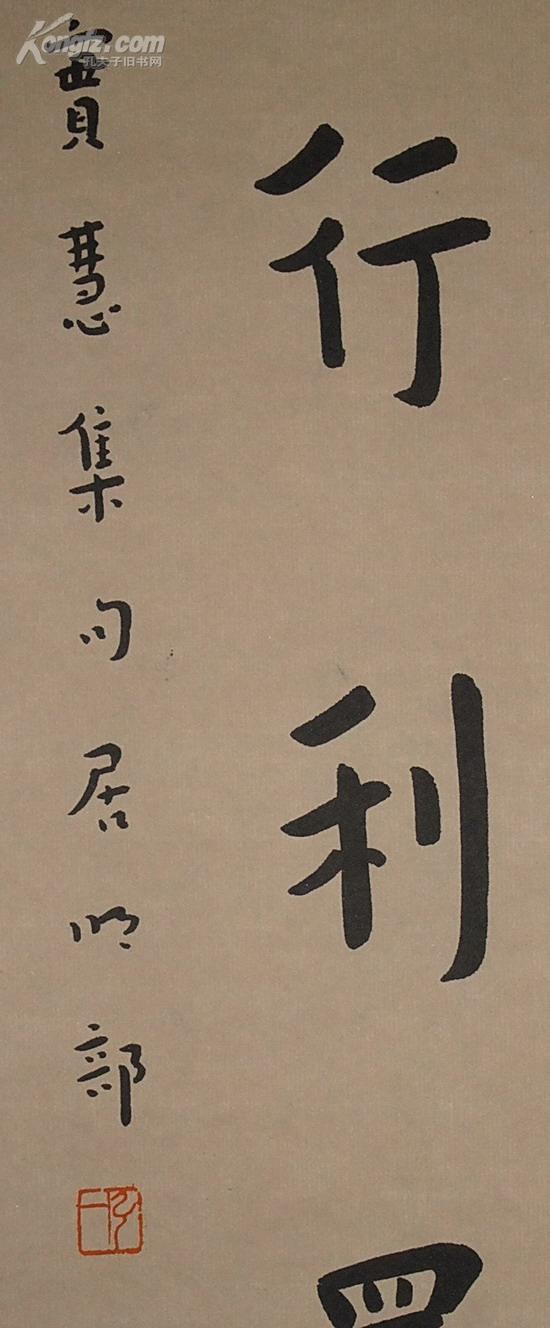 Kongfz.com
孔夫子旧书网
行利
實慧集句居部
弘一